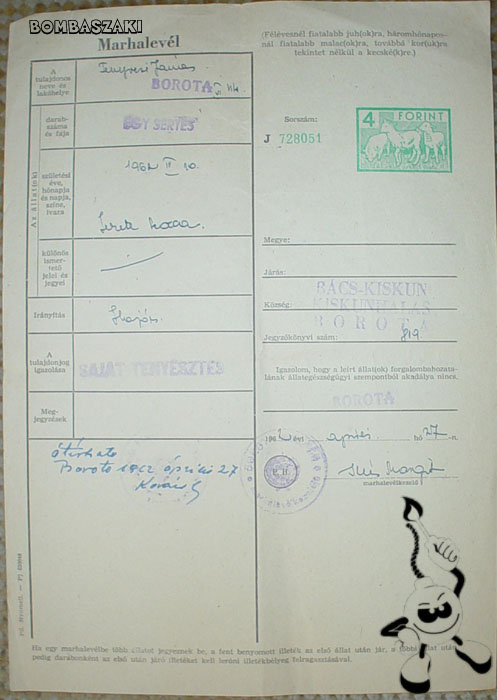 BOMBASZAKI
Marhalevél
(Félévesnél fiatalabb juh(ok)ra, háromhónapos-
nál fiatalabb malac(ok)ra, továbbá kor(uk)ra
tekintet nélkül a kecské(k)re.)
A
tulajdonos
neve és
lakóhelye
János
BOROTA
darab-
száma és
faja
EGY SERTÉS
Az állat(ok)
születési
éve,
hónapja
és napja,
színe,
ivara
különös
ismer-
tető
jelei és
jegyei
Irányítás
A
tulajdonjog
igazolása
SAJÁT TENYÉSZTÉS
Meg-
jegyzések
Borota
április 27
Sorszám:
J 728051
4 FORINT
Megye:
BÁCS-KISKUN
Járás:
KISKUNHALAS
Község:
BOROTA
Jegyzőkönyvi szám: 819
Igazolom, hogy a leírt állat(ok) forgalombahozata-
lának állategészségügyi szempontból akadálya nincs.
BOROTA
196 évi április hó 27-n.
marhalevélkezelő
Ha egy marhalevélbe több állatot jegyeznek be, a fent benyomott illeték az első állat után jár, a többi állat után
pedig darabonként az első után járó illetéket kell leróni illetékbélyeg felragasztásával.